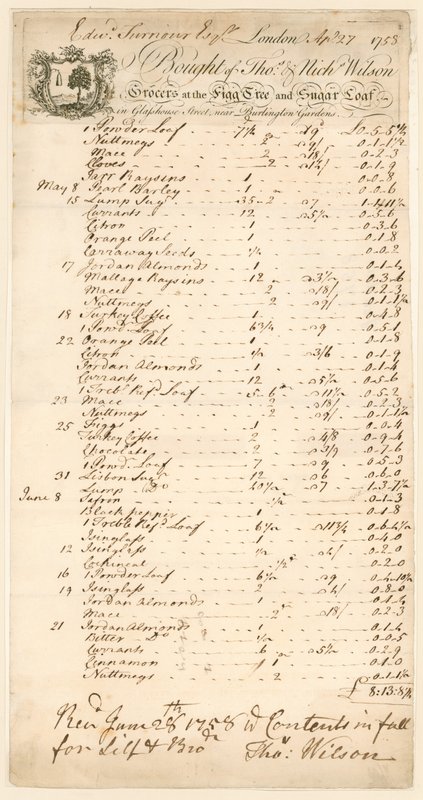 Edwd. Turnour Esqr. London Apl. 27 1758
Bought of Thos. & Richd. Wilson
Grocers at the Figg Tree and Sugar Loaf
in Glasshouse Street, near Burlington Gardens.
1 Powder Loaf 7½ a 9d £0-5-5¾
Nuttmegs 2 a 9/ 0-1-1½
Mace 2 a 18/ 0-2-3
Cloves 2 0-1-9
Jarr Raysins 1 0-0-8
May 8 Pearl Barley 1 0-0-6
15 Lump Sugr. 35-2 a 7 1-1-11½
Currants 12 a 5½ 0-5-6
Citron 1 0-3-6
Orange Peel 1 0-1-8
Carraway Seeds ¼ 0-0-2
17 Jordan Almonds 1 0-1-4
Mallage Raysins 12 a 3½ 0-3-6
Mace 2 a 18/ 0-2-3
Nuttmegs 2 a 9/ 0-1-1½
18 Turkey Coffee 1 0-4-8
1 Powdr. Loaf 6¾ a 9 0-5-1
22 Orange Peel 1 0-1-8
Citron ½ a 3/6 0-1-9
Jordan Almonds 1 0-1-4
Currants 12 a 5½ 0-5-6
1 Treb. Refd. Loaf 5-6 a 11½ 0-5-2
23 Mace 2 a 18/ 0-2-3
Nuttmegs 2 a 9/ 0-1-1½
25 Figgs 1 0-0-4
Turkey Coffee 2 a 4/8 0-9-4
Chocolate 2 a 3/9 0-7-6
1 Powd. Loaf 7 a 9 0-5-3
31 Lisbon Sugr. 12 a 6 0-6-0
Lump Do. 40½ a 7 1-3-7½
June 8 Safron ¼ 0-1-3
Black pepper 1 0-1-8
1 Treble Refd. Loaf 6¾ a 11¾
Isinglass 1 0-4-0
12 Isinglass ½ a 4/ 0-2-0
Cochineal ½ 0-2-0
16 1 Powder Loaf 6½ a 9 0-4-10½
19 Isinglass 2 a 4/ 0-8-0
Jordan Almonds 1 0-1-4
Mace 2 a 18/ 0-2-3
21 Jordan Almonds 1 0-1-4
Bitter Do. ¼ 0-0-5
Currants 6 a 5½ 0-2-9
Cinnamon 1 0-1-0
Nuttmegs 2 0-1-1½
£ 8:13:8¼
Recd. June 28th 1758 ye Contents in full
for Self & Bror. Thos: Wilson